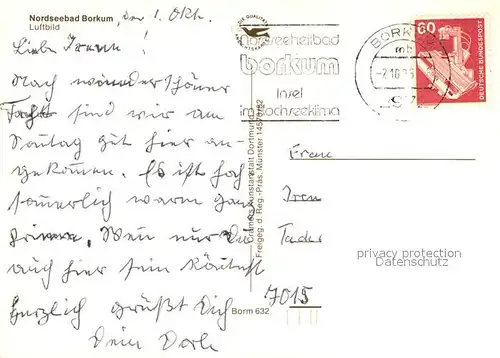 Nordseebad Borkum, den 1. Okt.
Luftbild
Liebe Irene!
Nach wunderschöner
Fahrt sind wir am
Sonntag gut hier an-
gekommen. Es ist hoch
sommerlich warm ganz
prima. Wenn nur Du
auch hier sein könntest
Herzlich grüßt Dich
Dein
DIE QUALITÄTS
Nordseeheilbad
borkum
Insel
im Hochseeklima
BORKUM
60
DEUTSCHE BUNDESPOST
Kunstanstalt Dortmund
Freigeg. d. Reg.-Präs. Münster 14570/82
Frau
7015
Borm 632
privacy protection
Datenschutz